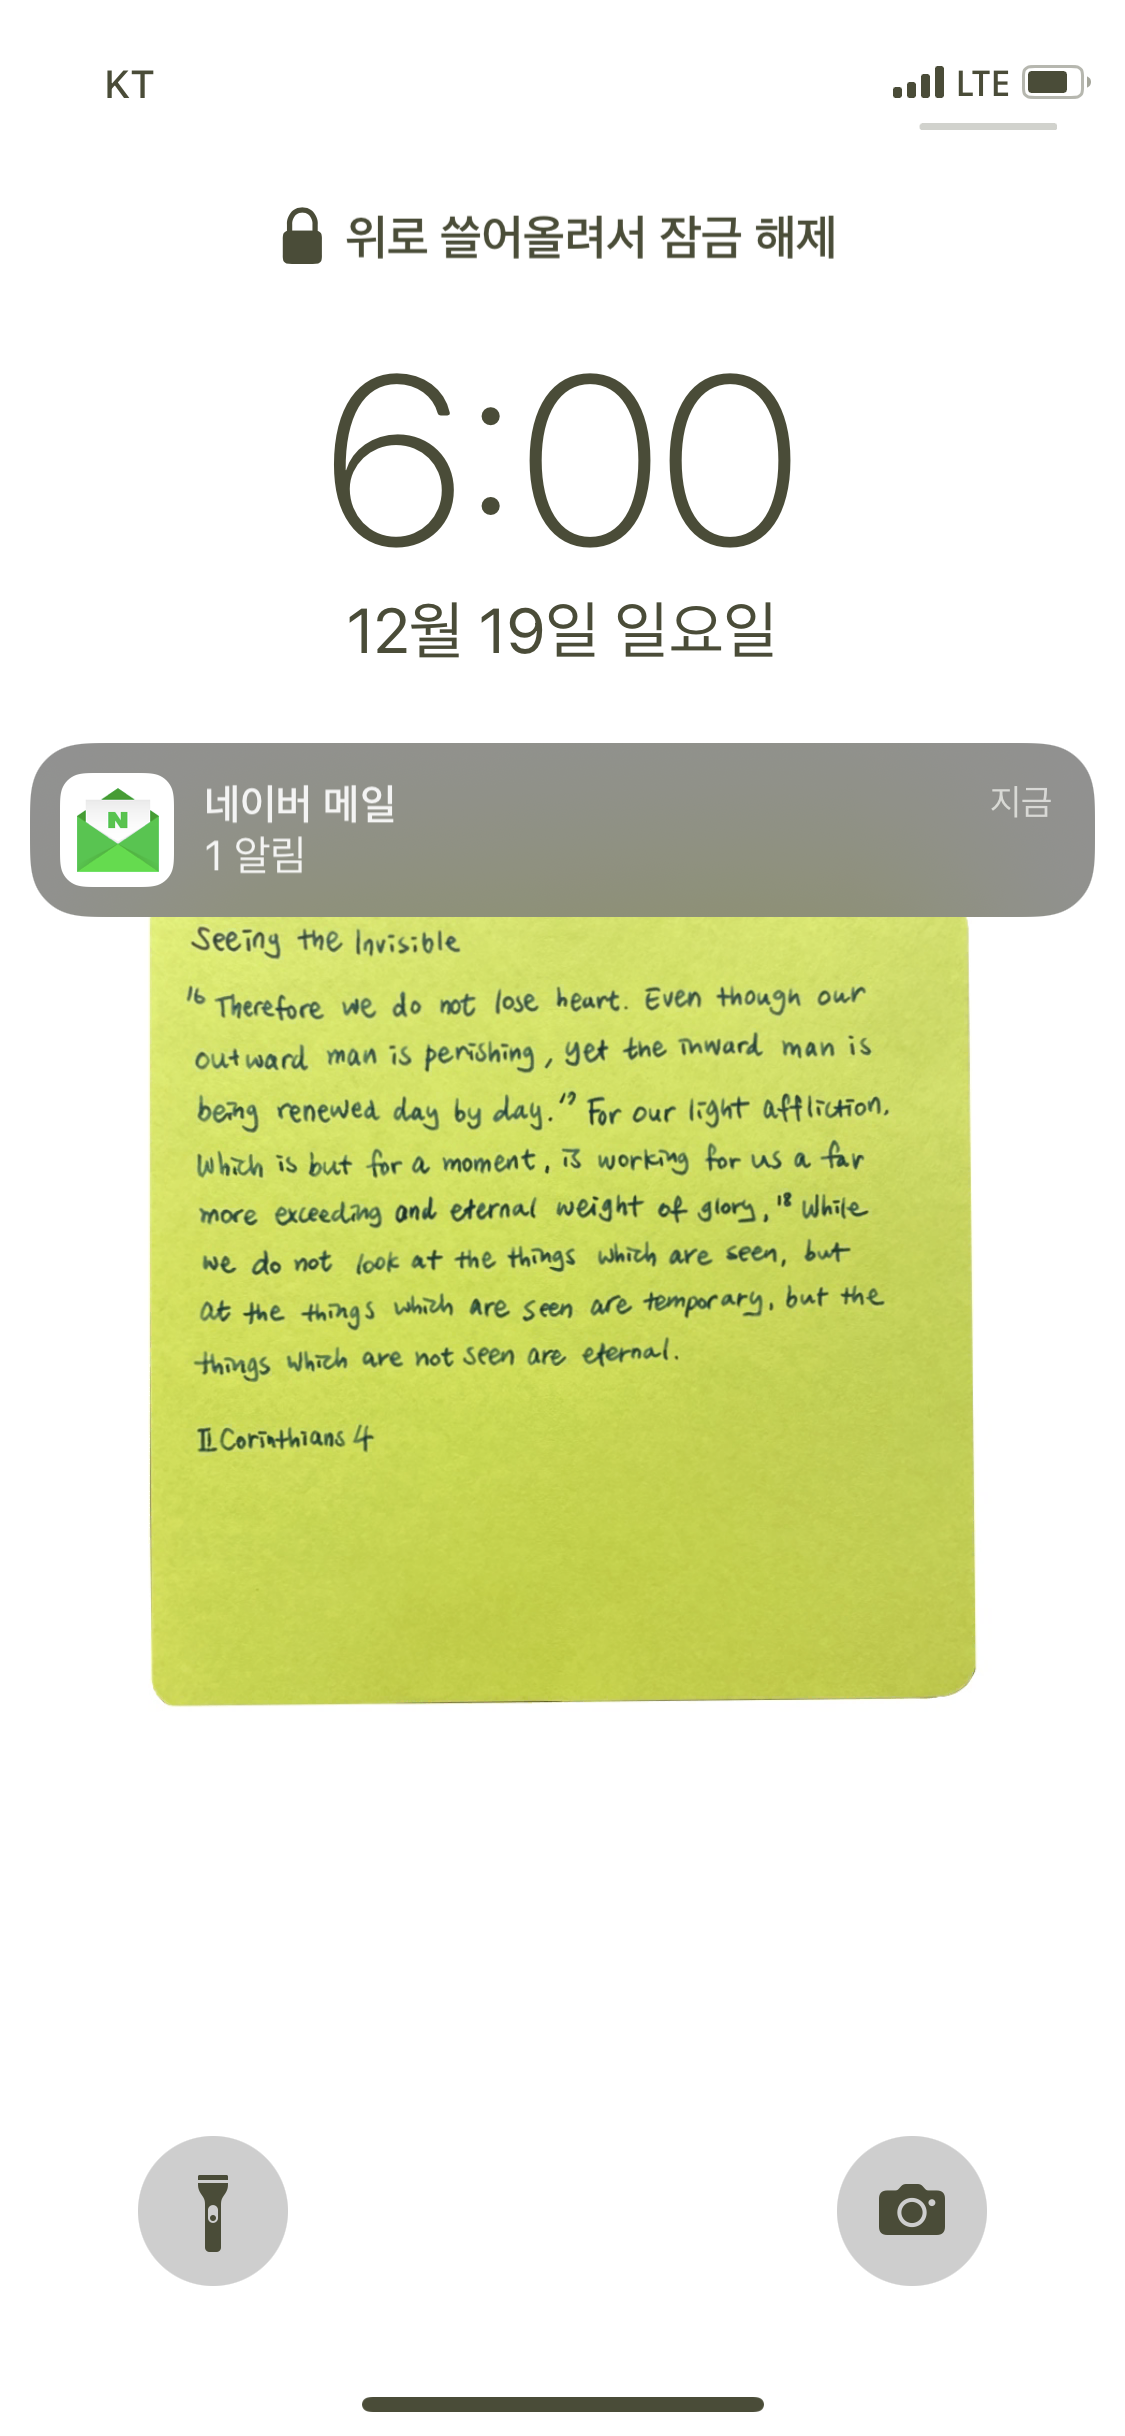 KT
LTE
위로 쓸어올려서 잠금 해제
6:00
12월 19일 일요일
N
네이버 메일
지금
1 알림
Seeing the Invisible
16 Therefore we do not lose heart. Even though our
outward man is perishing, yet the inward man is
being renewed day by day. 17 For our light affliction,
Which is but for a moment, is working for us a far
more exceeding and eternal weight of glory, 18 While
we do not look at the things which are seen, but
at the things which are seen are temporary, but the
things which are not seen are eternal.
II Corinthians 4